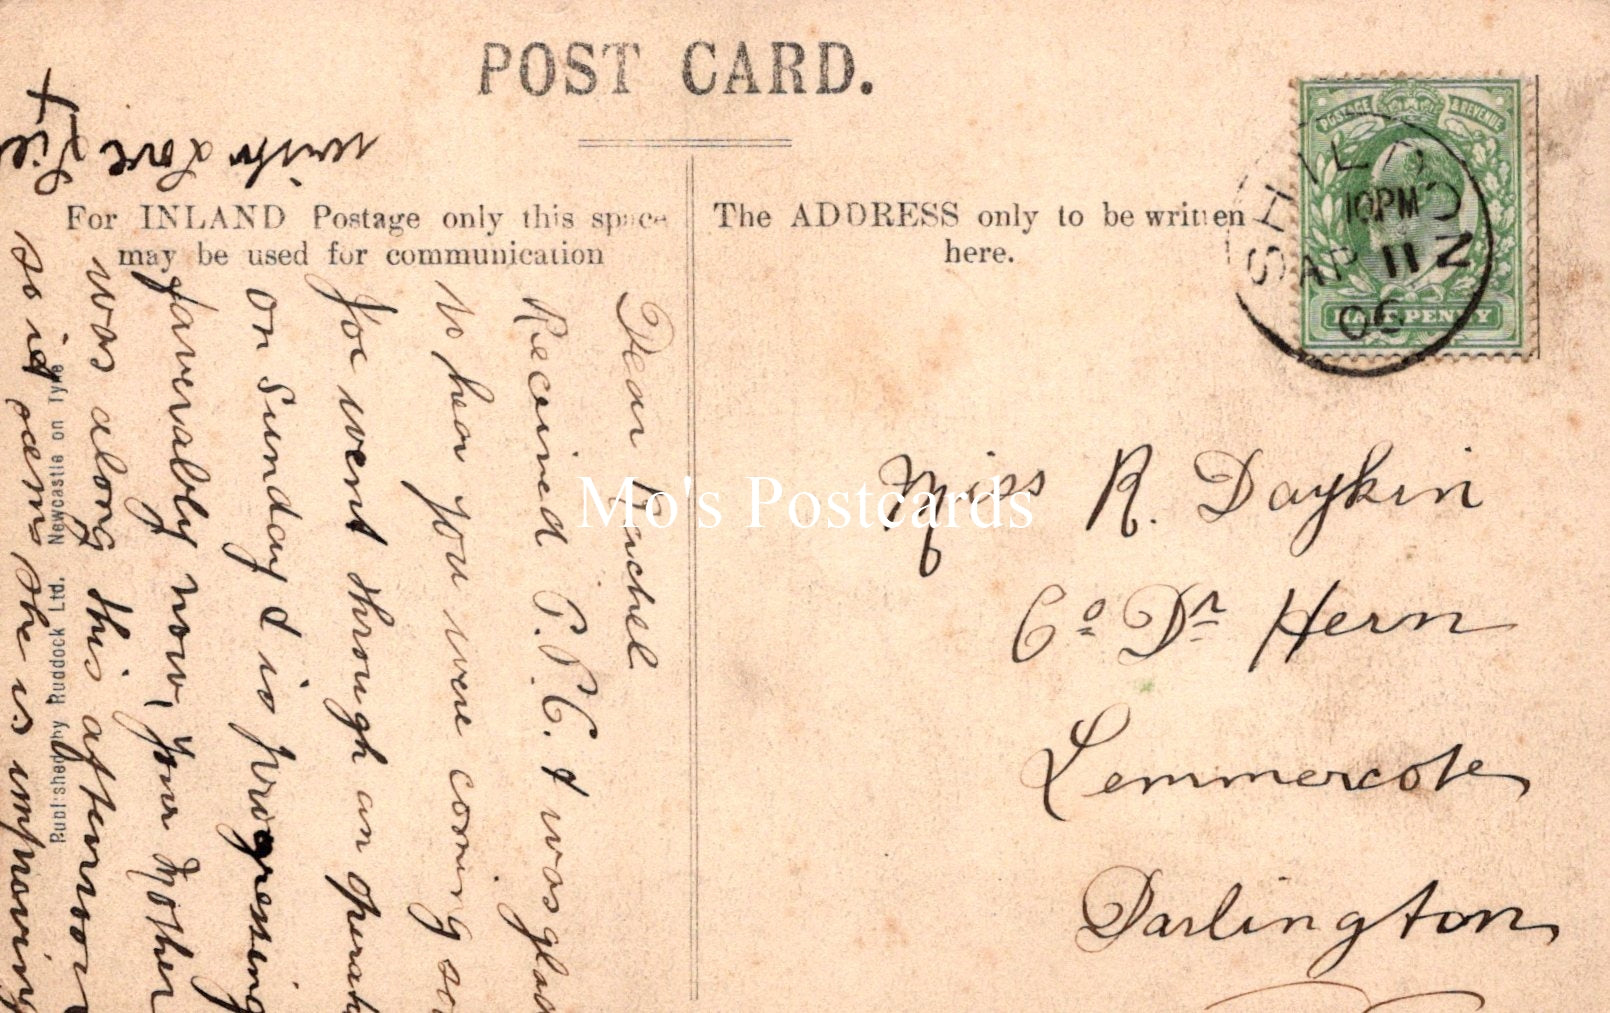 POST CARD.
For INLAND Postage only this space
may be used for communication
The ADDRESS only to be written
here.
POSTAGE & REVENUE
HALF PENNY
SHILDON
10 PM
AP 11
06
Miss R. Daykin
Co Dr Hern
Lemmercote
Darlington
Dear Rachel
Received P.P.C. & was glad
to hear you were coming so
Joe went through an operati
on Sunday & is progressing
faverably now, your Mother
was along this afternoon
so it seems she is improving
with love Lie
Published by Ruddock Ltd. Newcastle on Tyne
Mo's Postcards